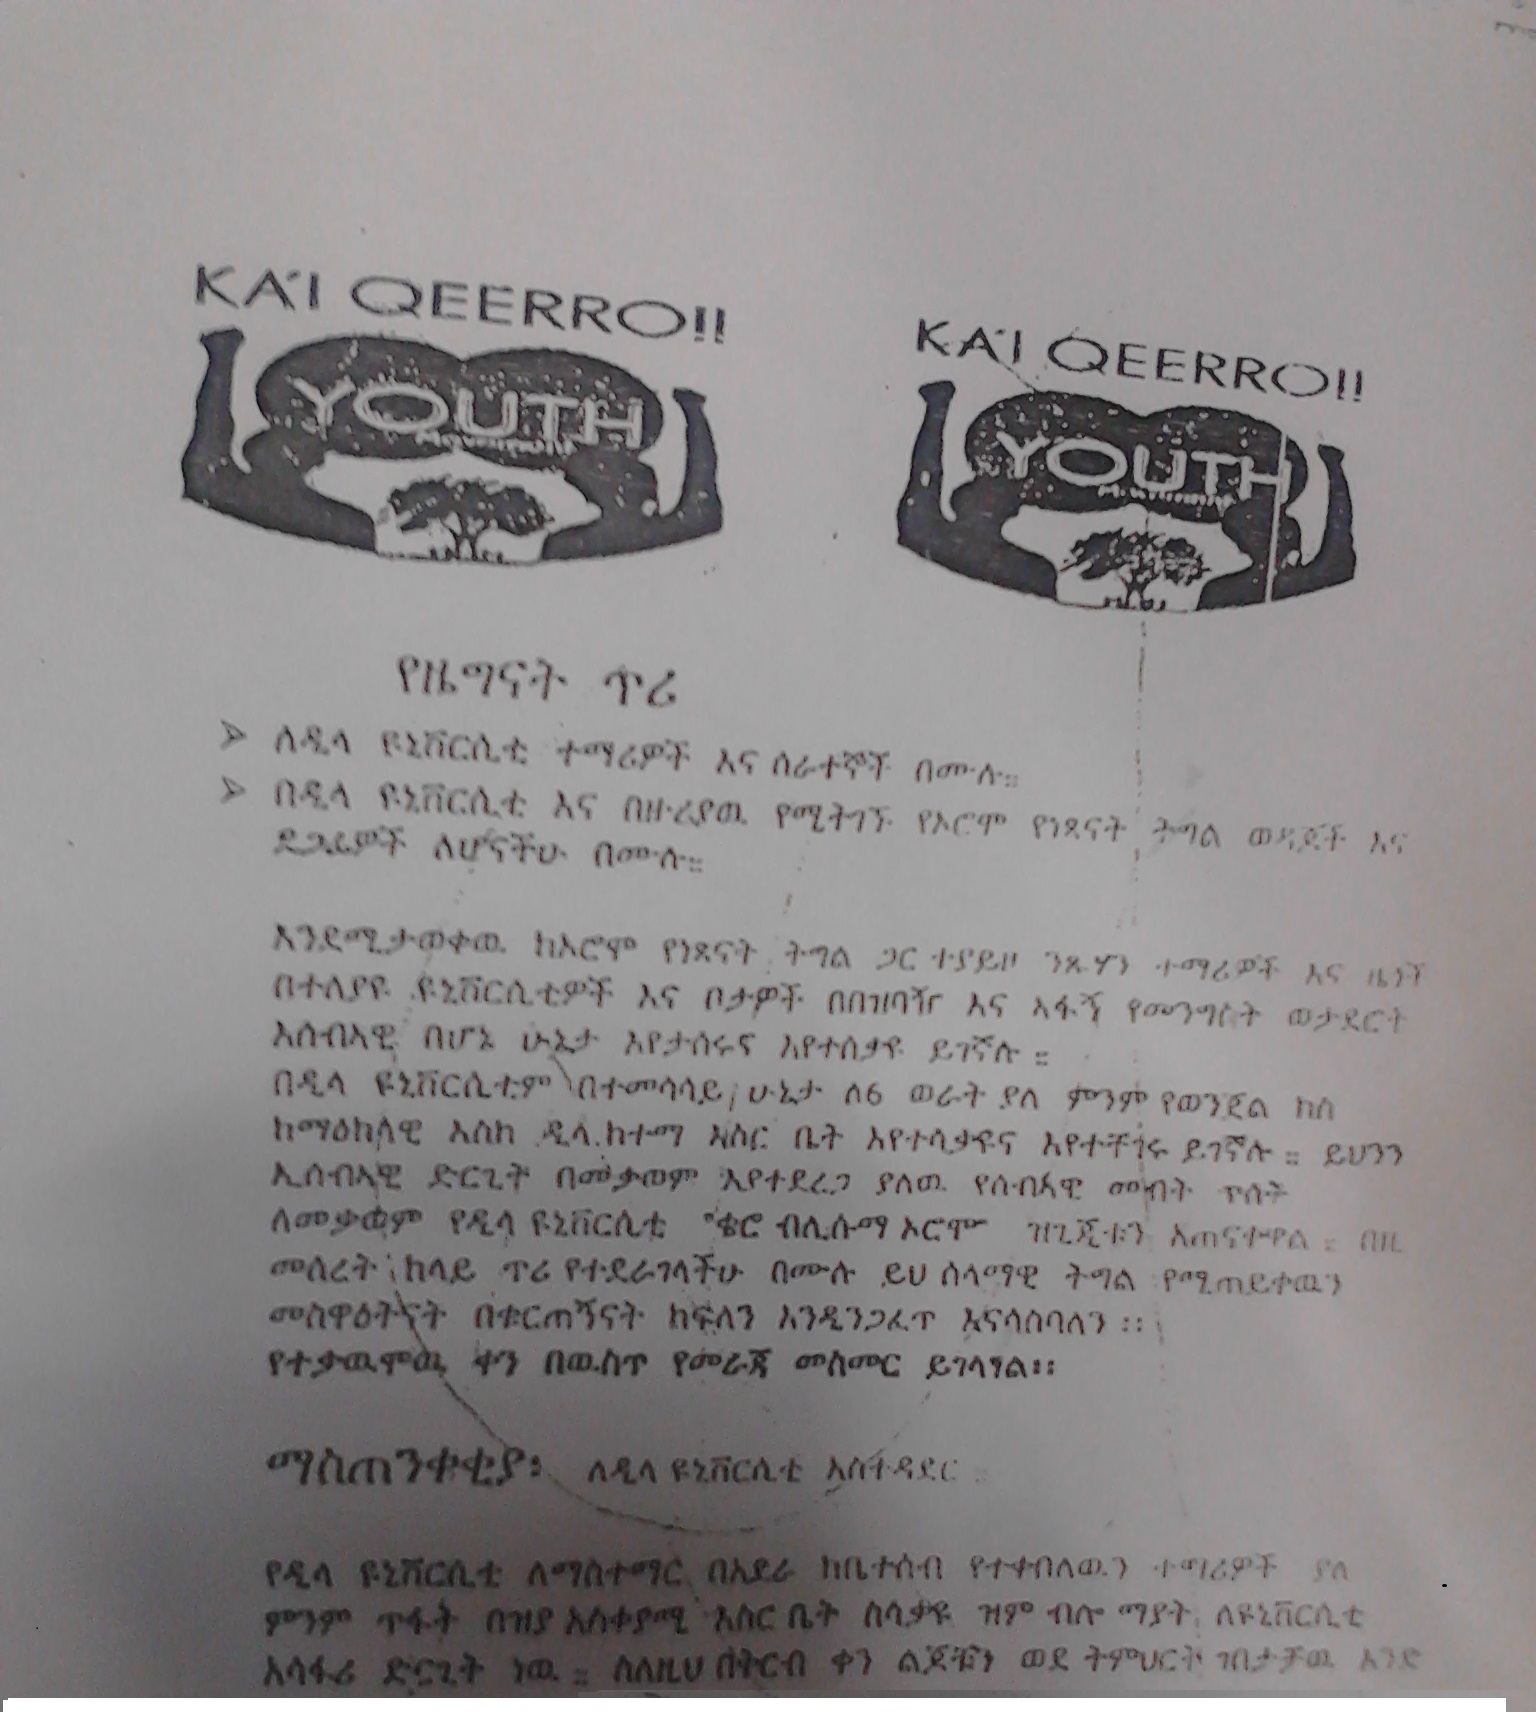 KA'I QEERRO!!
YOUTH
Movement
KA'I QEERRO!!
YOUTH
Movement
የዜግናት ጥሪ
➢ ለዲላ ዩኒቨርሲቲ ተማሪዎች እና ሰራተኞች በሙሉ።
➢ በዲላ ዩኒቨርሲቲ እና በዙሪያዉ የሚትገኙ የኦሮሞ የነጻናት ትግል ወዳጆች እና
ደጋፊዎች ለሆናችሁ በሙሉ።
እንደሚታወቀዉ ከኦሮሞ የነጻናት ትግል ጋር ተያይዞ ንጹሃን ተማሪዎች እና ዜጎች
በተለያዩ ዩኒቨርሲቲዎች እና ቦታዎች በበዝባዥ እና አፋኝ የመንግስት ወታደሮች
ኢሰብኣዊ በሆኔ ሁኔታ እየታሰሩና እየተሰቃዩ ይገኛሉ ።
በዲላ ዩኒቨርሲቲም በተመሳሳይ ሁኔታ ለ6 ወራት ያለ ምንም የወንጀል ክስ
ከማዕከላዊ እስከ ዲላ ከተማ እስር ቤት እየተሳቃዩና እየተቸገሩ ይገኛሉ ። ይህንን
ኢሰብኣዊ ድርጊት በመቃወም እየተደረጋ ያለዉ የሰብኣዊ መብት ጥሰት
ለመቃወም የዲላ ዩኒቨርሲቲ "ቄሮ ብሊሱማ ኦሮሞ" ዝጊጂቱን አጠናተዋል ። በዚ
መሰረት ከላይ ጥሪ የተደራገላችሁ በሙሉ ይህ ሰላማዊ ትግል የሚጠይቀዉን
መስዋዕትናት በቁርጠኝናት ከፍለን እንዲንጋፈጥ እናሳስባለን ፡፡
የተቃዉሞዉ ቀን በዉስጥ የመራጃ መስመር ይገላፃል፡፡
ማስጠንቀቂያ፡ ለዲላ ዩኒቨርሲቲ አስተዳደር ።
የዲላ ዩኒቨርሲቲ ለማስተማር በአደራ ከቤተሰብ የተቀበለዉን ተማሪዎች ያለ
ምንም ጥፋት በዝያ አስቀያሚ እስር ቤት ስሳቃዩ ዝም ብሎ ማያት ለዩኒቨርሲቲ
አሳፋሪ ድርጊት ነዉ ። ስለዚህ በቅርብ ቀን ልጆቹን ወደ ትምህርት ገበታቻዉ እንድ